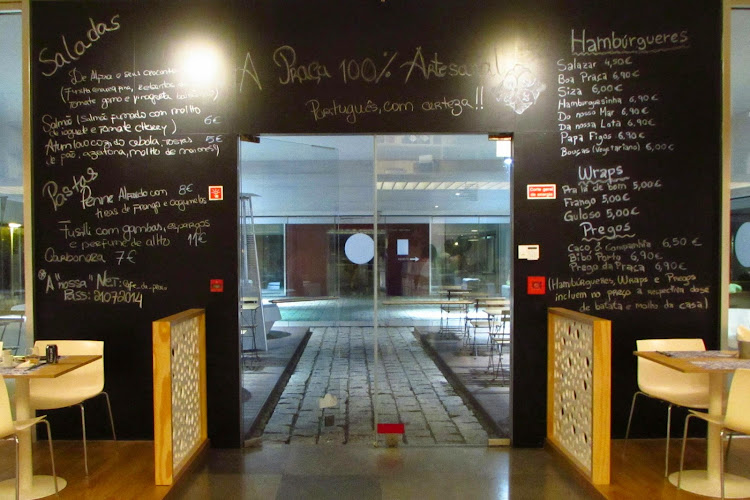 Saladas
De Alface e
tomate
Salmão (Salmão fumado com molho
de iogurte e tomate cherry)
Atum (
de pão, azeitona, molho de maionese)
5€
6€
Pastas
Penne Alfredo com 8€
tiras de frango e cogumelos
Fusilli com gambas, espargos
e perfume de alho 11€
Carbonara 7€
A "nossa" Net:
Pass: 21072014
A Praça 100% Artesanal
Português, com certeza!!
Hambúrgueres
Salazar 4,90€
Boa Praça 6,90€
Siza 6,00€
Hamburguesinha 9,90€
Do nosso Mar 6,90€
Da nossa Lota 6,90€
Papa Figos 6,90€
Bouças (Vegetariano) 6,00€
Wraps
Pra lá de bom 5,00€
Frango 5,00€
Guloso 5,00€
Pregos
Caco & Companhia 6,50€
Bibó Porto 6,90€
Prego da Praça 6,90€
(Hambúrgueres, Wraps e Pregos
incluem no preço a respectiva dose
de batata e molho da casa)
Corte geral
de energia